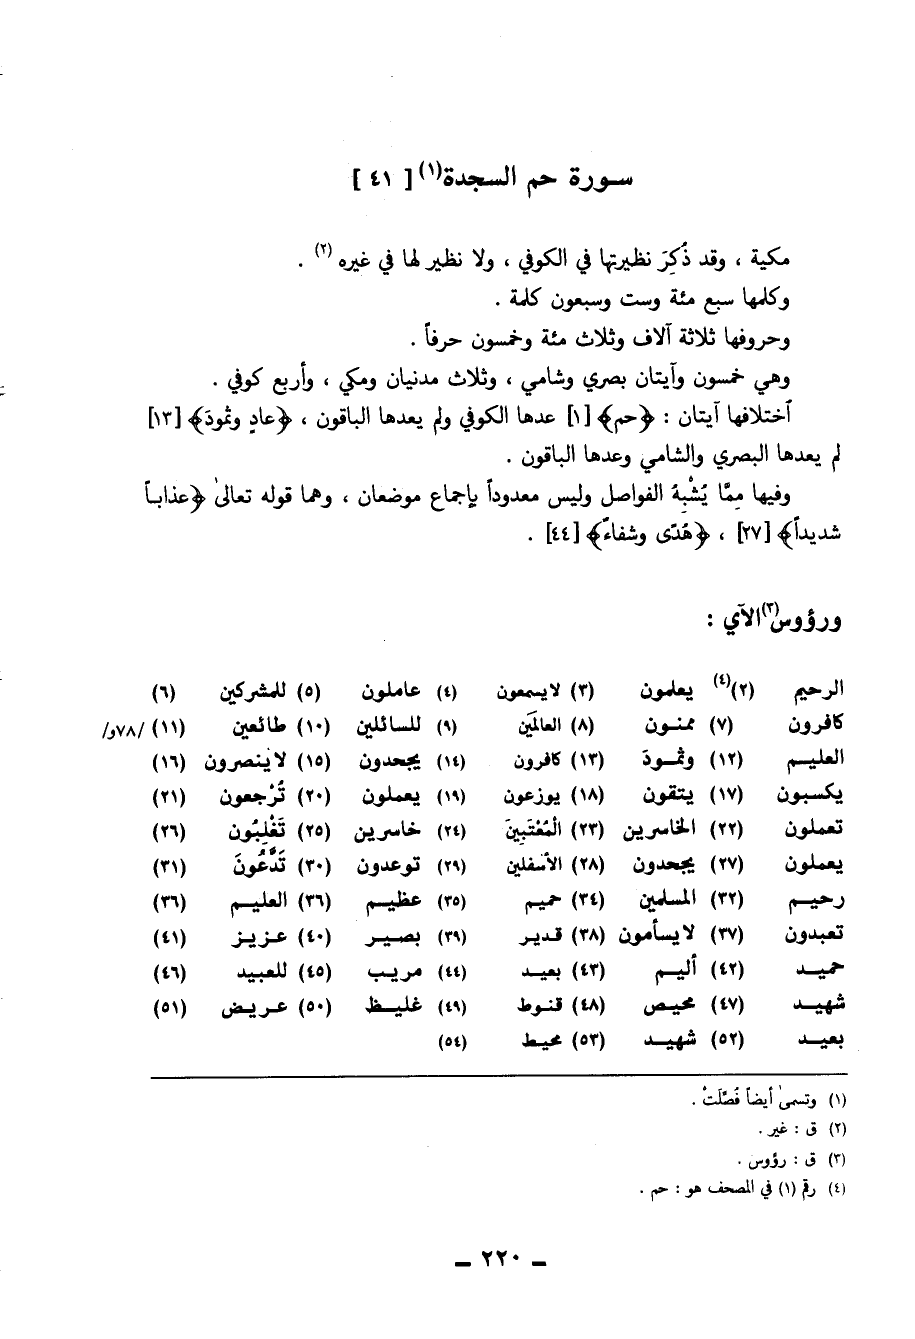 سورة حم السجدة(١) [ ٤١ ]
مكية ، وقد ذُكِرَ نظيرتها في الكوفي ، ولا نظير لها في غيره (٢) .
وكلمها سبع مئة وست وسبعون كلمة .
وحروفها ثلاثة آلاف وثلاث مئة وخمسون حرفاً .
وهي خمسون وآيتان بصري وشامي ، وثلاث مدنيان ومكي ، وأربع كوفي .
اختلافها آيتان : ﴿حم﴾ [١] عدها الكوفي ولم يعدها الباقون ، ﴿عادٍ وثمودَ﴾ [١٣]
لم يعدها البصري والشامي وعدها الباقون .
وفيها ممَّا يُشْبِهُ الفواصل وليس معدوداً بإجماع موضعان ، وهما قوله تعالىٰ ﴿عذاباً
شديداً﴾ [٢٧] ، ﴿هُدًى وشفاءٌ﴾ [٤٤] .
ورؤوس(٣) الآي :
الرحيم (٢)(٤) يعلمون (٣) لا يسمعون (٤) عاملون (٥) للمشركين (٦)
كافرون (٧) ممنون (٨) العالمَين (٩) للسائلين (١٠) طائعين (١١) /٧٨و/
العليم (١٢) وثمودَ (١٣) كافرون (١٤) يجحدون (١٥) لا ينصرون (١٦)
يكسبون (١٧) يتقون (١٨) يوزعون (١٩) يعملون (٢٠) تُرْجعون (٢١)
تعملون (٢٢) الخاسرين (٢٣) الْمُعْتَبِينَ (٢٤) خاسرين (٢٥) تَغْلِبُون (٢٦)
يعملون (٢٧) يجحدون (٢٨) الأسفلين (٢٩) توعدون (٣٠) تَدَّعُونَ (٣١)
رحيم (٣٢) المسلمين (٣٤) حميم (٣٥) عظيم (٣٦) العليم (٣٦)
تعبدون (٣٧) لا يسأمون (٣٨) قدير (٣٩) بصير (٤٠) عزيز (٤١)
حميد (٤٢) أليم (٤٣) بعيد (٤٤) مريب (٤٥) للعبيد (٤٦)
شهيد (٤٧) محيص (٤٨) قنوط (٤٩) غليظ (٥٠) عريض (٥١)
بعيد (٥٢) شهيد (٥٣) محيط (٥٤)
(١) وتسمىٰ أيضاً فُصِّلَتْ .
(٢) ق : غير .
(٣) ق : رؤوس .
(٤) رقم (١) في المصحف هو : حم .
ـ ٢٢٠ ـ